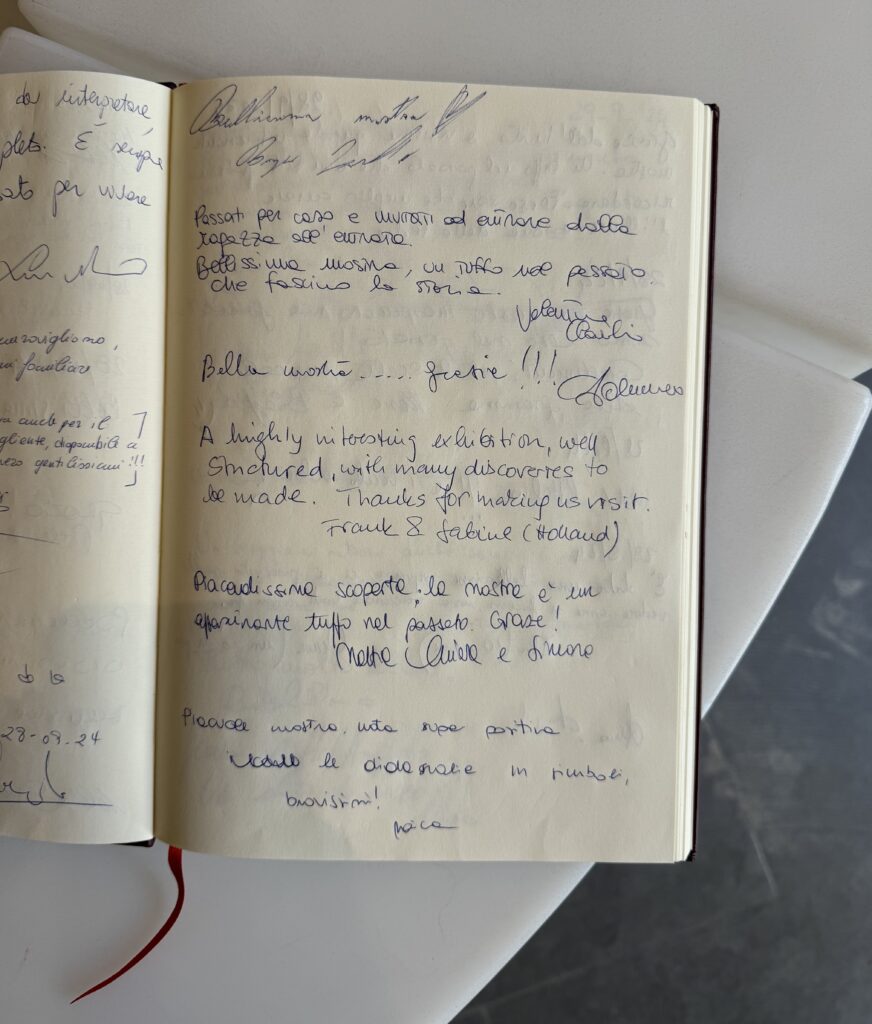 da interpretare
È sempre
per
familiare
anche per il
disponibile a
gentilissimi!!!
28-09-24
Bellissima mostra
Passati per caso e invitati ad entrare dalla
ragazza all'entrata.
Bellissima mostra, un tuffo nel passato
che fascino la storia.
Valentina
Bella mostra ..... grazie!!!
A highly interesting exhibition, well
structured, with many discoveries to
be made. Thanks for making us visit.
Frank & Sabine (Holland)
Piacevolissima scoperta; la mostra è un
affascinante tuffo nel passato. Grazie!
Chiara e Simone
Piacevole mostra, nota super positiva
le didascalie in
bravissimi!